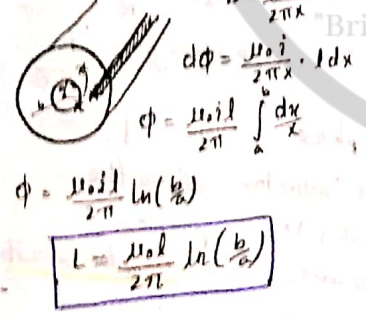 2πx
"Bri
dφ = μ₀i/2πx · l dx
φ = μ₀il/2π ∫ₐᵇ dx/x
φ = μ₀il/2π ln(b/a)
L = μ₀l/2π ln(b/a)